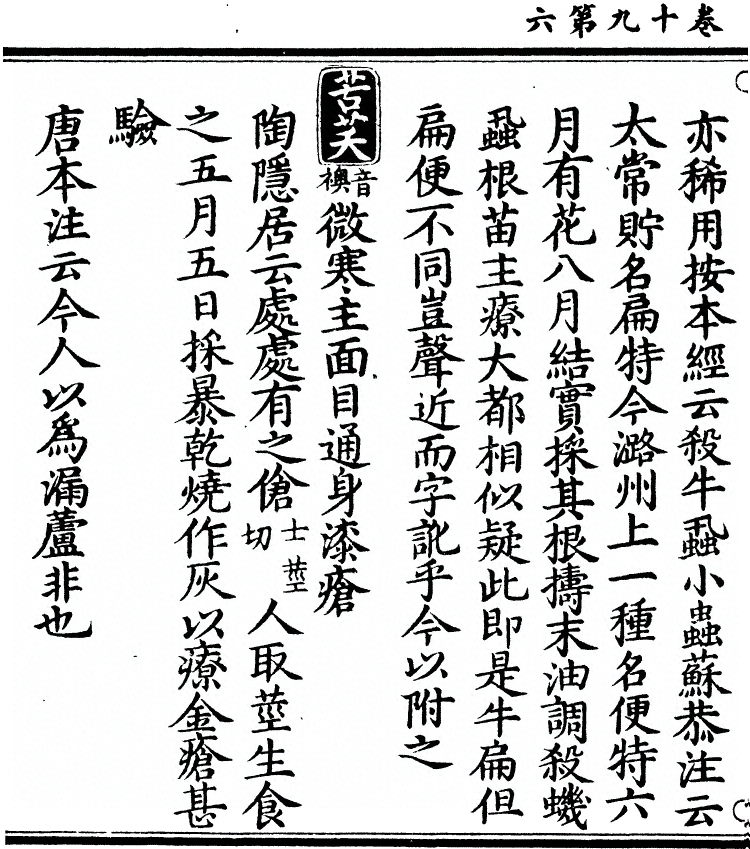 卷十九第六
亦稀用按本經云殺牛䖝小蟲蘇恭注云
太常貯名扁特今潞州上一種名便特六
月有花八月結實採其根擣末油調殺蟣
蝨根苗主療大都相似疑此即是牛扁但
扁便不同豈聲近而字訛乎今以附之
苦芺音襖微寒主面目通身漆瘡
陶隱居云處處有之傖士莖切人取莖生食
之五月五日採暴乾燒作灰以療金瘡甚
驗
唐本注云今人以為漏蘆非也